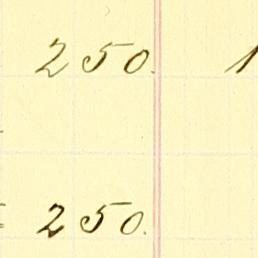 250. 1
250.